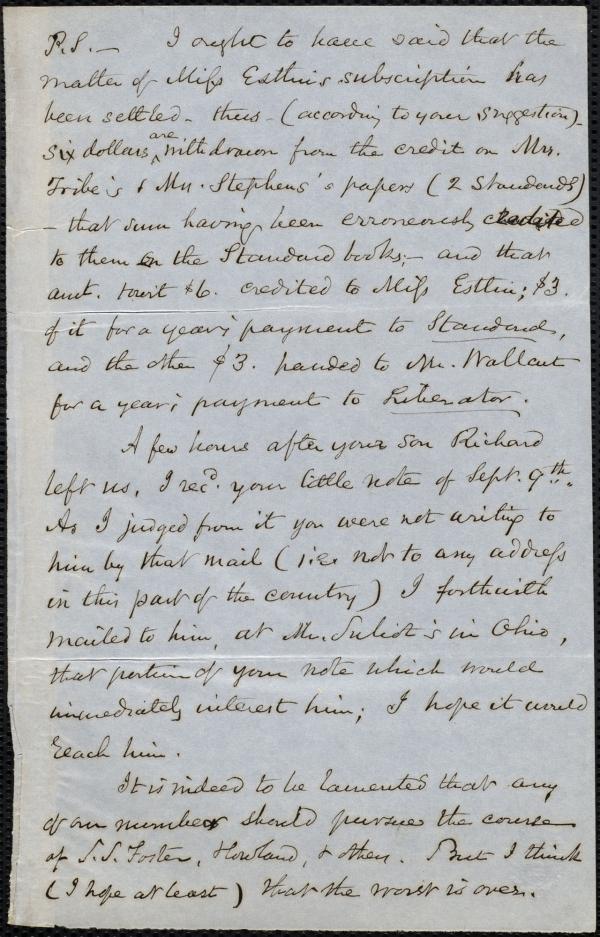 P.S. — I ought to have said that the
matter of Miss Estlin's subscription has
been settled - thus - (according to your suggestion) -
six dollars are withdrawn from the credit on Mrs.
Tribe's & Mrs. Stephens's papers (2 Standards)
- that sum having been erroneously credited
to them on the Standard books; - and that
amt. towit $6. credited to Miss Estlin; $3.
of it for a year's payment to Standard,
and the other $3. handed to Mr. Wallcut
for a year's payment to Liberator.
A few hours after your son Richard
left us, I recd. your little note of Sept. 9th.
As I judged from it you were not writing to
him by that mail (i.e. not to any address
in this part of the country) I forthwith
mailed to him, at Mr. Suliot's in Ohio,
that portion of your note which would
immediately interest him; I hope it would
reach him.
It is indeed to be lamented that any
of our number should pursue the course
of S.S. Foster, Howland, & others. But I think
(I hope at least) that the worst is over.